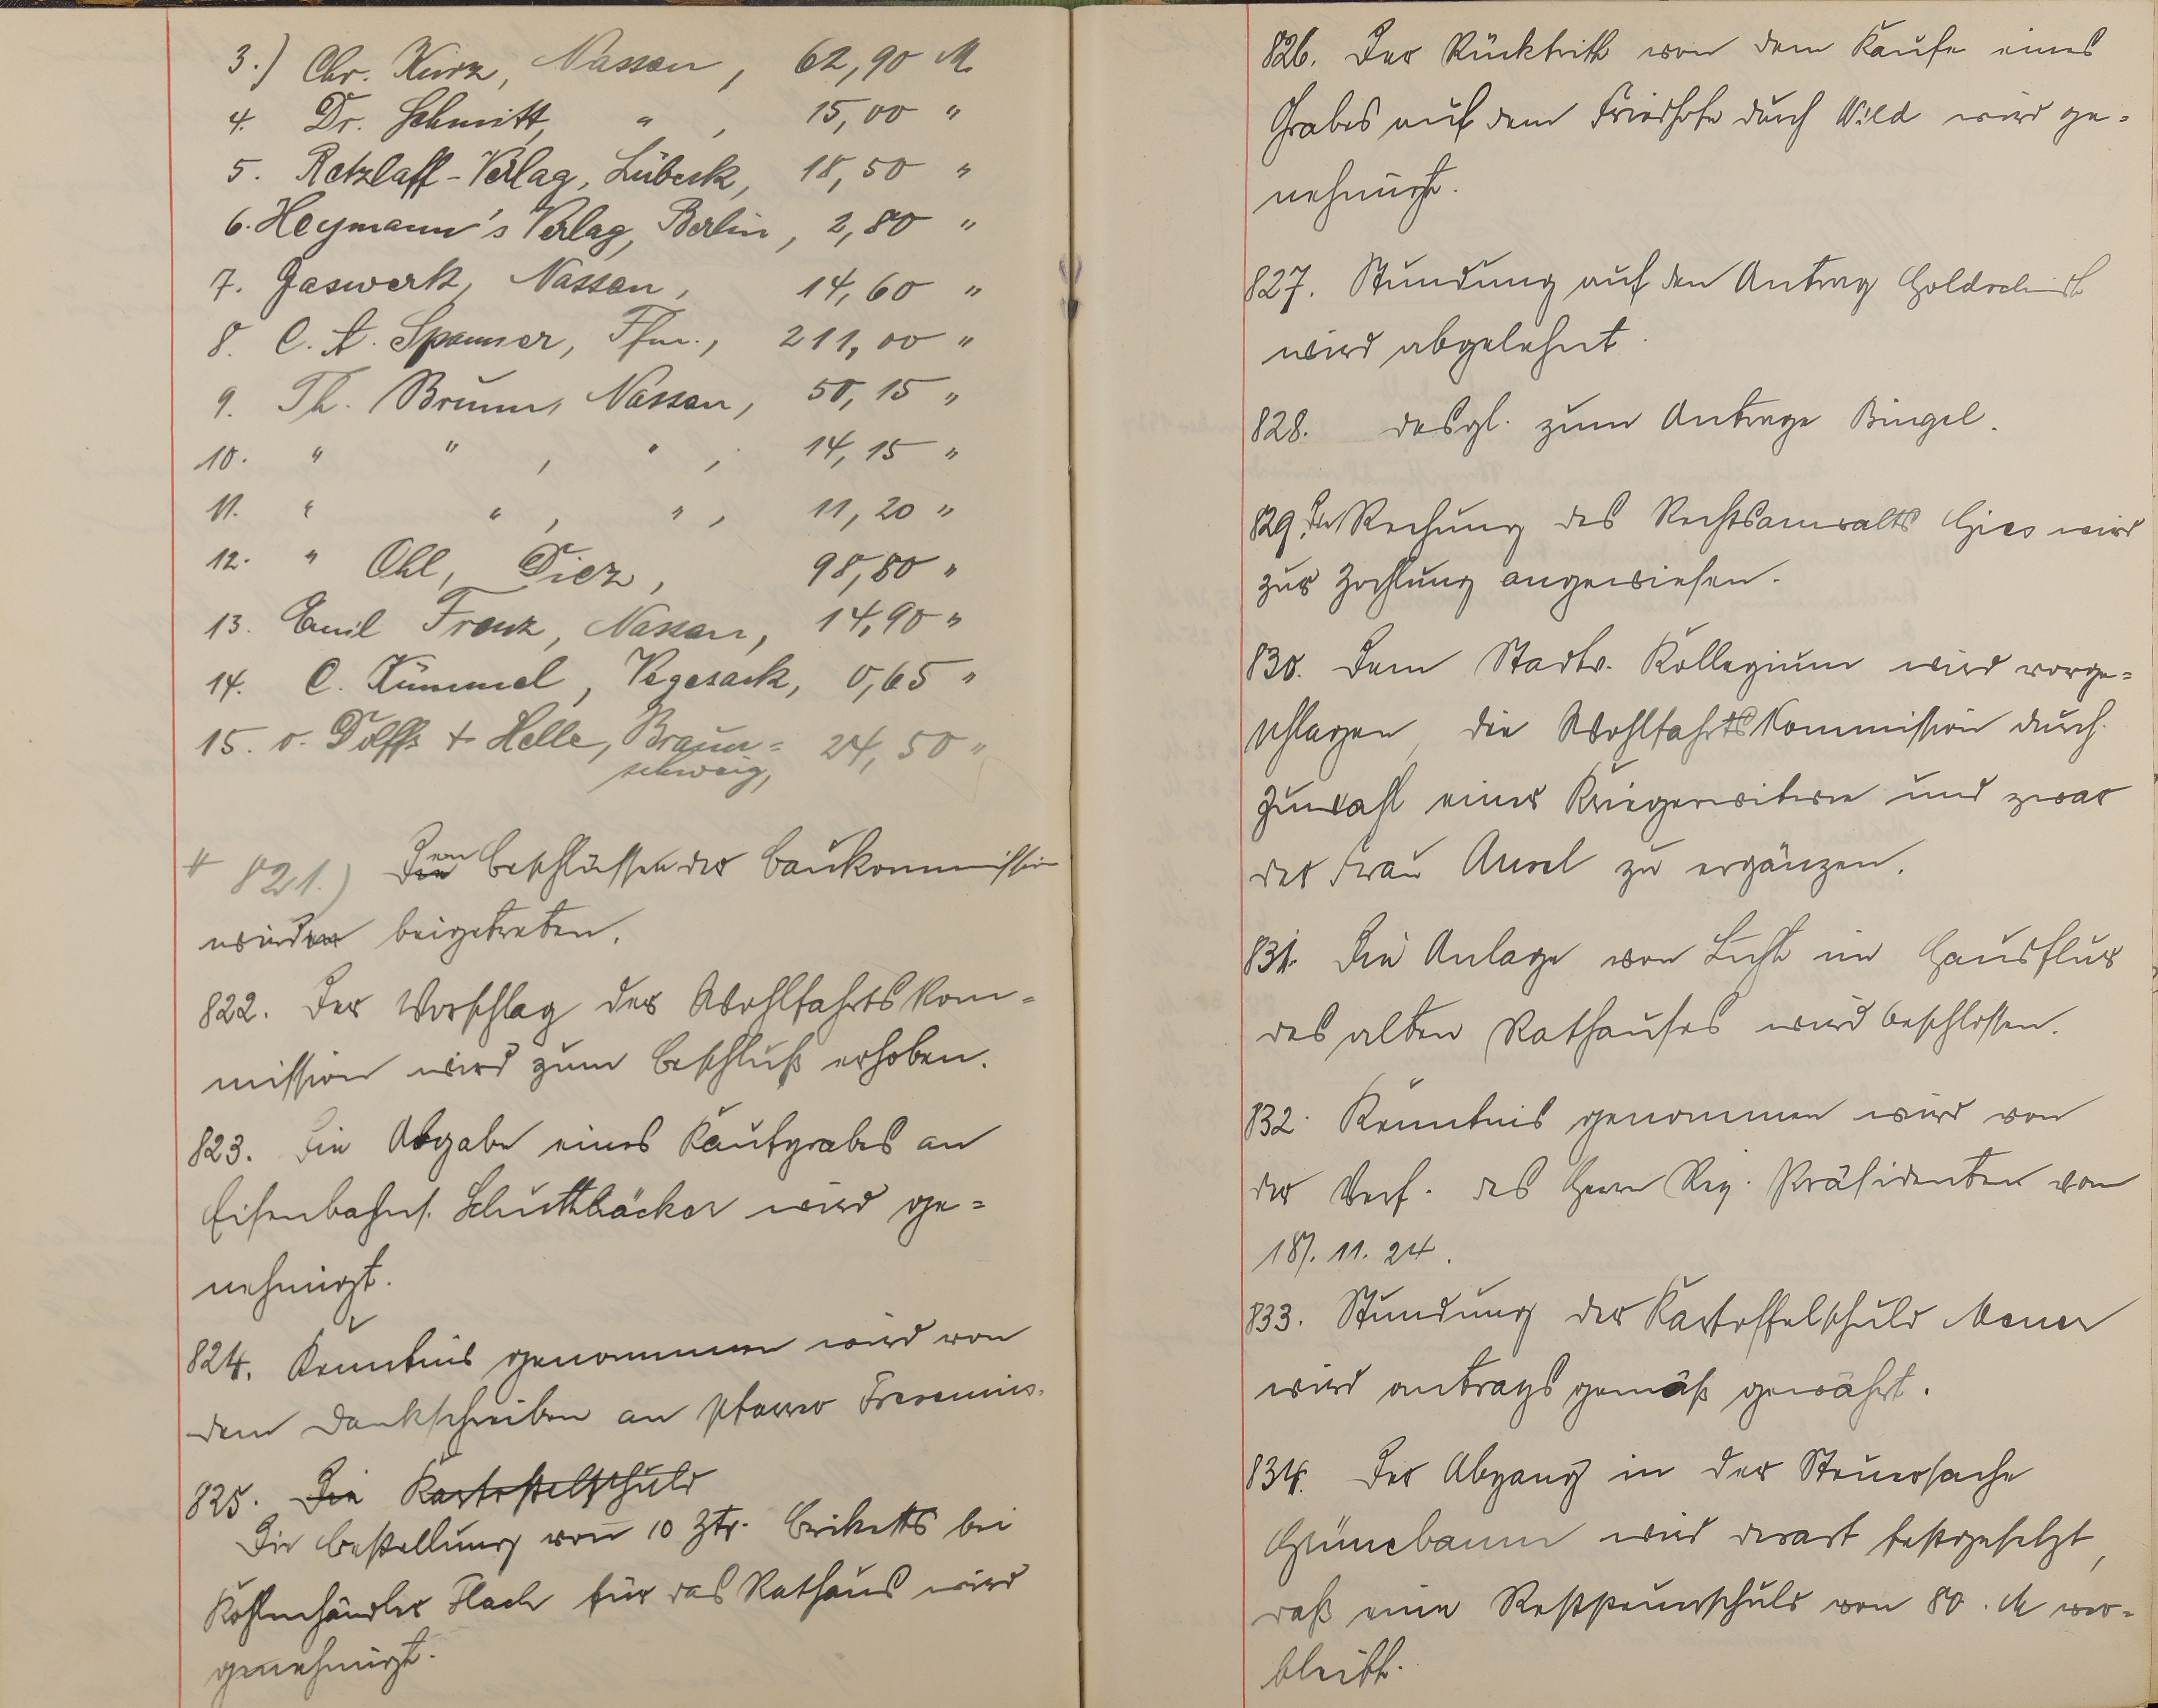 3.) Chr. Kurz, Nassau, 62,90 M.
4. Dr. Schmitt, " , 15,00 "
5. Retzlaff-Verlag, Lübeck, 18,50 "
6. Heymann's Verlag, Berlin, 2,80 "
7. Gaswerk, Nassau, 14,60 "
8. C. A. Spanner, Ffm., 211,00 "
9. Th. Brunn, Nassau, 50,15 "
10. " " , " , 14,15 "
11. " " , " , 11,20 "
12. " Ohl, Diez, 98,80 "
13. Emil Franz, Nassau, 14,90 "
14. C. Kümmel, Vegesack, 0,65 "
15. v. Dolffs + Helle, Braun= 24,50 "
schweig,
821.) Den Beschlüssen der Baukommission
wird beigetreten.
822. Der Vorschlag der Wohlfahrtskom=
mission wird zum Beschluß erhoben.
823. Die Abgabe eines Kaufgrabes an
Eisenbahns. Schuttbäcker wird ge=
nehmigt.
824. Kenntnis genommen wird von
dem Dankschreiben an Pfarrer Fresenius.
825. Die Kartoffelschuld
Die Bestellung von 10 Ztr. Briketts bei
Kohlenhändler Flach für das Rathaus wird
genehmigt.
826. Der Rücktritt von dem Kaufe eines
Grabes auf dem Friedhofe durch Wild wird ge=
nehmigt.
827. Stundung auf den Antrag Goldschmidt
wird abgelehnt.
828. desgl. zum Antrage Bingel.
829. Die Rechnung des Rechtsanwalts Gies wird
zur Zahlung angewiesen.
830. Dem Stadtv. Kollegium wird vorge=
schlagen, die Wohlfahrtskommission durch
Zuwahl einer Kriegerwitwe und zwar
der Frau Ausel zu ergänzen.
831. Die Anlage von Licht im Hausflur
des alten Rathauses wird beschlossen.
832. Kenntnis genommen wird von
der Verf. des Herrn Reg. Präsidenten vom
18. 11. 24.
833. Stundung der Kartoffelschuld
wird antragsgemäß gewährt.
834. Der Abgang in der Steuersache
Grünebaum wird derart festgesetzt,
daß eine Reststeuerschuld von 80. M ver=
bleibt.